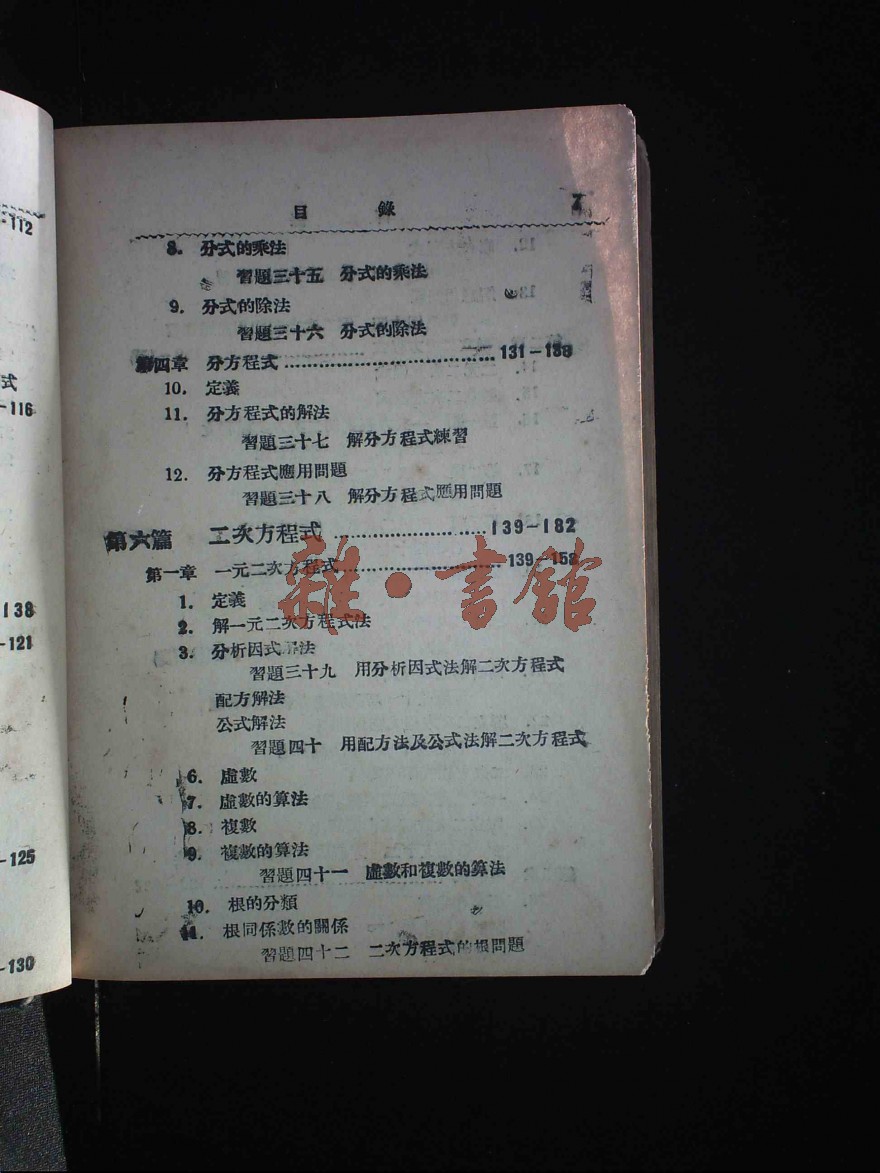 -112
式
-116
138
-121
-125
-130
目 錄 7
8. 分式的乘法
習題三十五 分式的乘法
9. 分式的除法
習題三十六 分式的除法
第四章 分方程式 131-138
10. 定義
11. 分方程式的解法
習題三十七 解分方程式練習
12. 分方程式應用問題
習題三十八 解分方程式應用問題
第六篇 二次方程式 139-182
第一章 一元二次方程式 139-158
1. 定義
2. 解一元二次方程式法
3. 分析因式解法
習題三十九 用分析因式法解二次方程式
配方解法
公式解法
習題四十 用配方法及公式法解二次方程式
6. 虛數
7. 虛數的算法
8. 複數
9. 複數的算法
習題四十一 虛數和複數的算法
10. 根的分類
11. 根同係數的關係
習題四十二 二次方程式的根問題
雜·書館